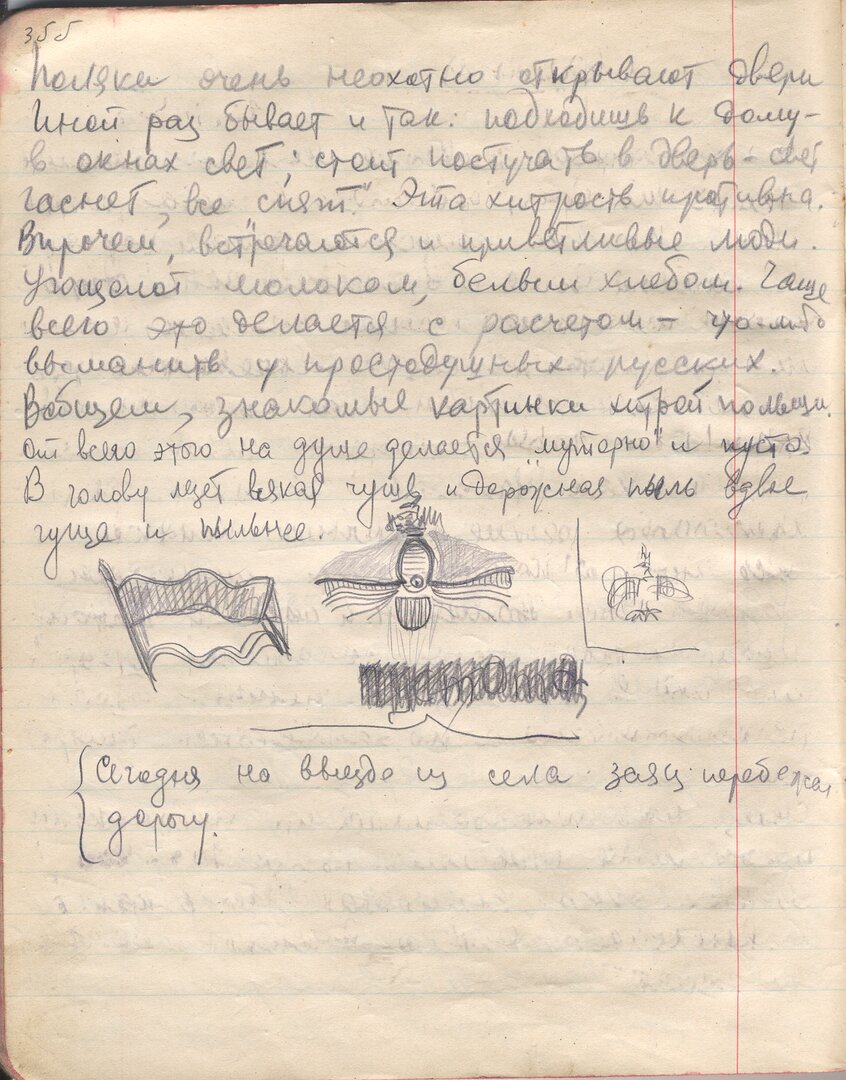 355
Поляки очень неохотно открывают двери
Иной раз бывает и так: подходишь к дому-
в окнах свет; стоит постучать в дверь - свет
гаснет, все "спят". Эта хитрость противна.
Впрочем, встречаются и приветливые люди.
Угощают молоком, белым хлебом. Чаще
всего это делается с расчетом - что-либо
выманить у простодушных русских.
Вобщем, знакомые картинки хитрой польши.
От всего этого на душе делается "муторно" и пусто.
В голову лезет всякая чушь и дорожная пыль вдвое
гуще и пыльнее.
Сегодня на въезде из села заяц перебежал
дорогу.